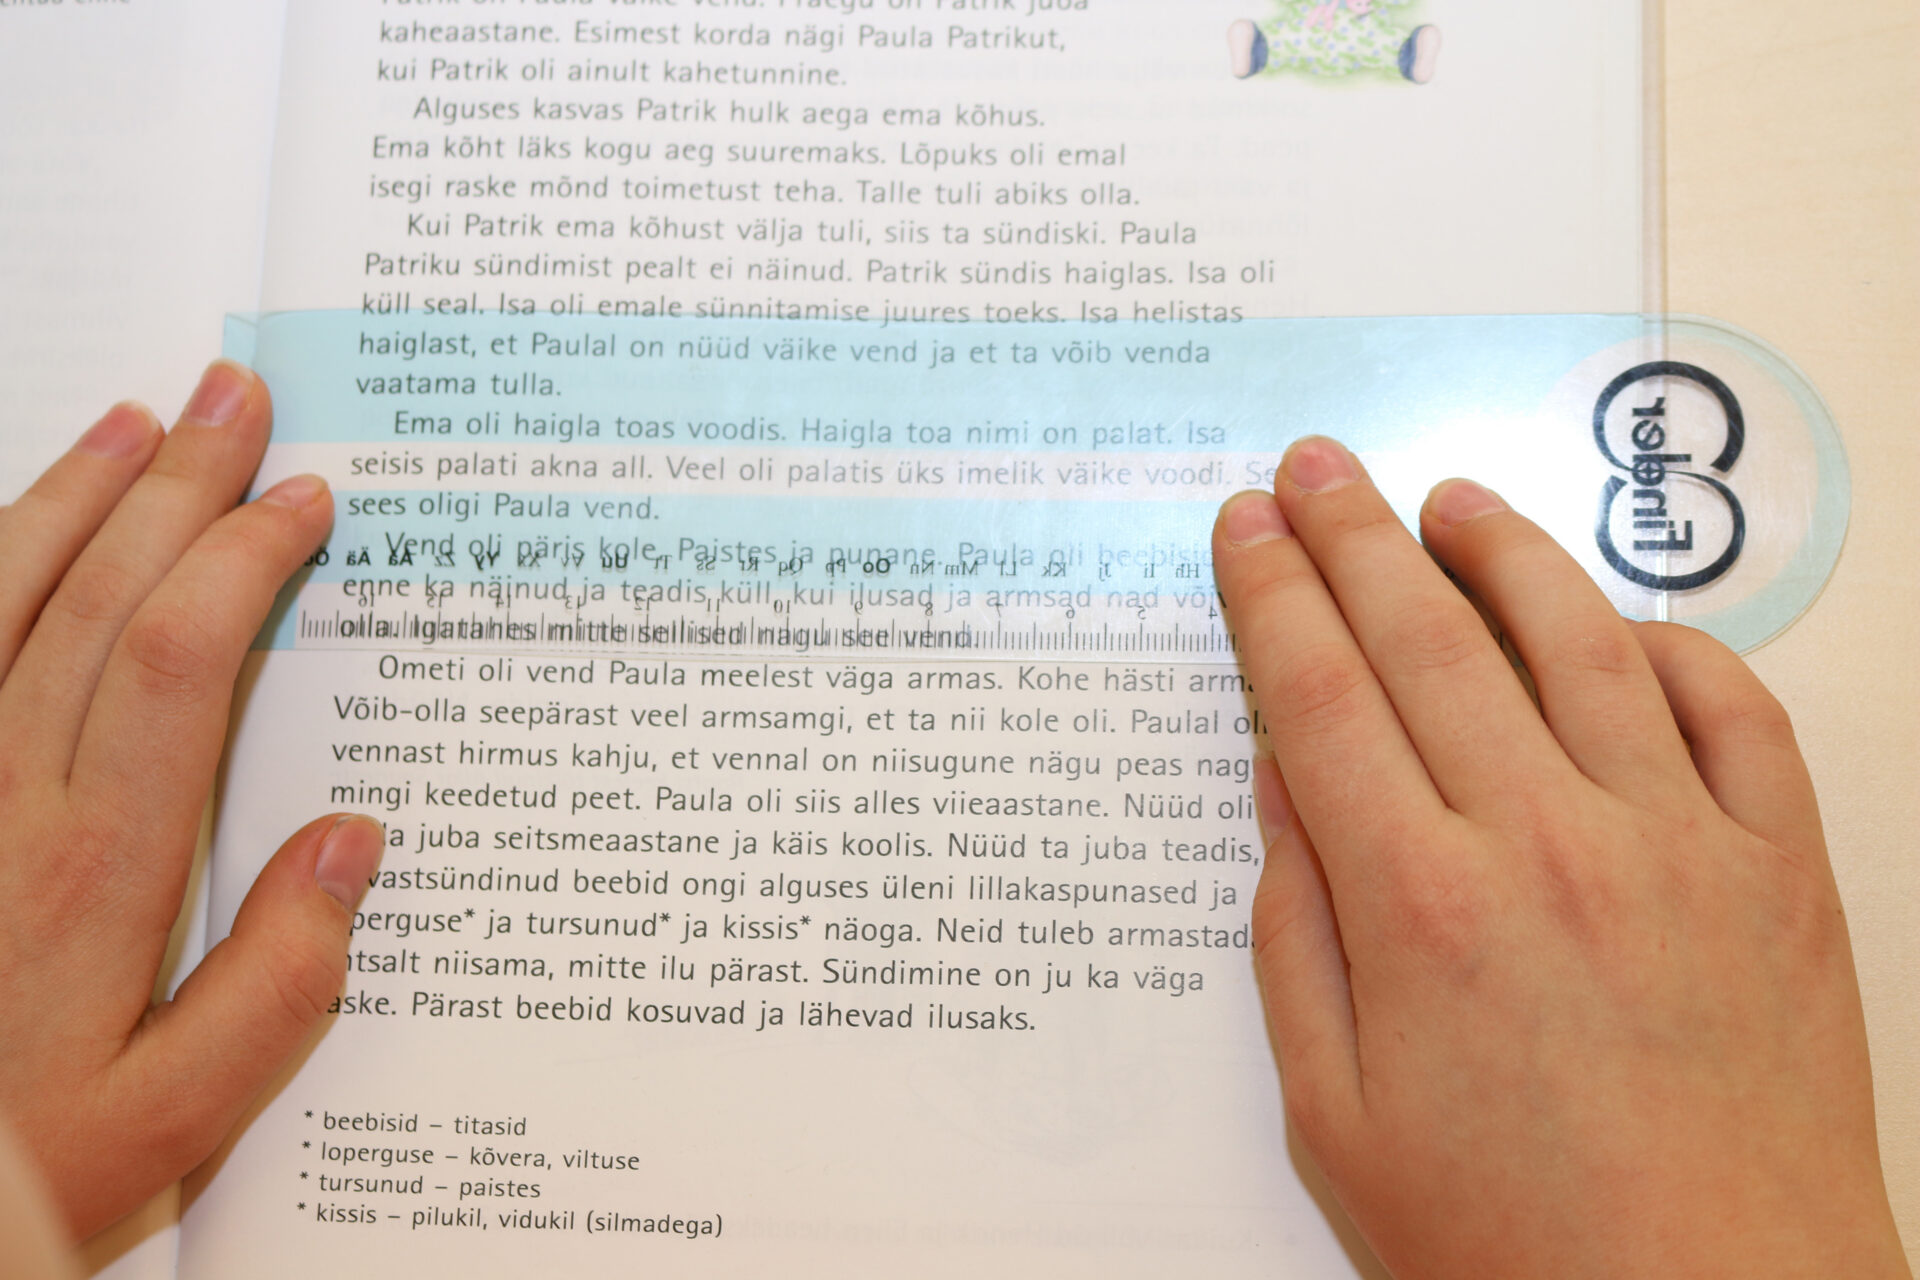 Patrik on Paula väike vend. Praegu on Patrik juba
kaheaastane. Esimest korda nägi Paula Patrikut,
kui Patrik oli ainult kahetunnine.
Alguses kasvas Patrik hulk aega ema kõhus.
Ema kõht läks kogu aeg suuremaks. Lõpuks oli emal
isegi raske mõnd toimetust teha. Talle tuli abiks olla.
Kui Patrik ema kõhust välja tuli, siis ta sündiski. Paula
Patriku sündimist pealt ei näinud. Patrik sündis haiglas. Isa oli
küll seal. Isa oli emale sünnitamise juures toeks. Isa helistas
haiglast, et Paulal on nüüd väike vend ja et ta võib venda
vaatama tulla.
Ema oli haigla toas voodis. Haigla toa nimi on palat. Isa
seisis palati akna all. Veel oli palatis üks imelik väike voodi. Se
sees oligi Paula vend.
Vend oli päris kole. Paistes ja punane. Paula oli beebisid
enne ka näinud ja teadis küll, kui ilusad ja armsad nad või
olla. Igatahes mitte sellised nagu see vend.
Ometi oli vend Paula meelest väga armas. Kohe hästi arma
Võib-olla seepärast veel armsamgi, et ta nii kole oli. Paulal oli
vennast hirmus kahju, et vennal on niisugune nägu peas nag
mingi keedetud peet. Paula oli siis alles viieaastane. Nüüd oli
la juba seitsmeaastane ja käis koolis. Nüüd ta juba teadis,
vastsündinud beebid ongi alguses üleni lillakaspunased ja
loperguse* ja tursunud* ja kissis* näoga. Neid tuleb armastad
ntsalt niisama, mitte ilu pärast. Sündimine on ju ka väga
aske. Pärast beebid kosuvad ja lähevad ilusaks.
* beebisid – titasid
* loperguse – kõvera, viltuse
* tursunud – paistes
* kissis – pilukil, vidukil (silmadega)
Öö Ää Åå Zz Yy Xx Vv Uu Tt Ss Rr Qq Pp Oo Nn Mm Ll Kk Jj Ii Hh
16 15 14 13 12 11 10 9 8 7 6 5 4